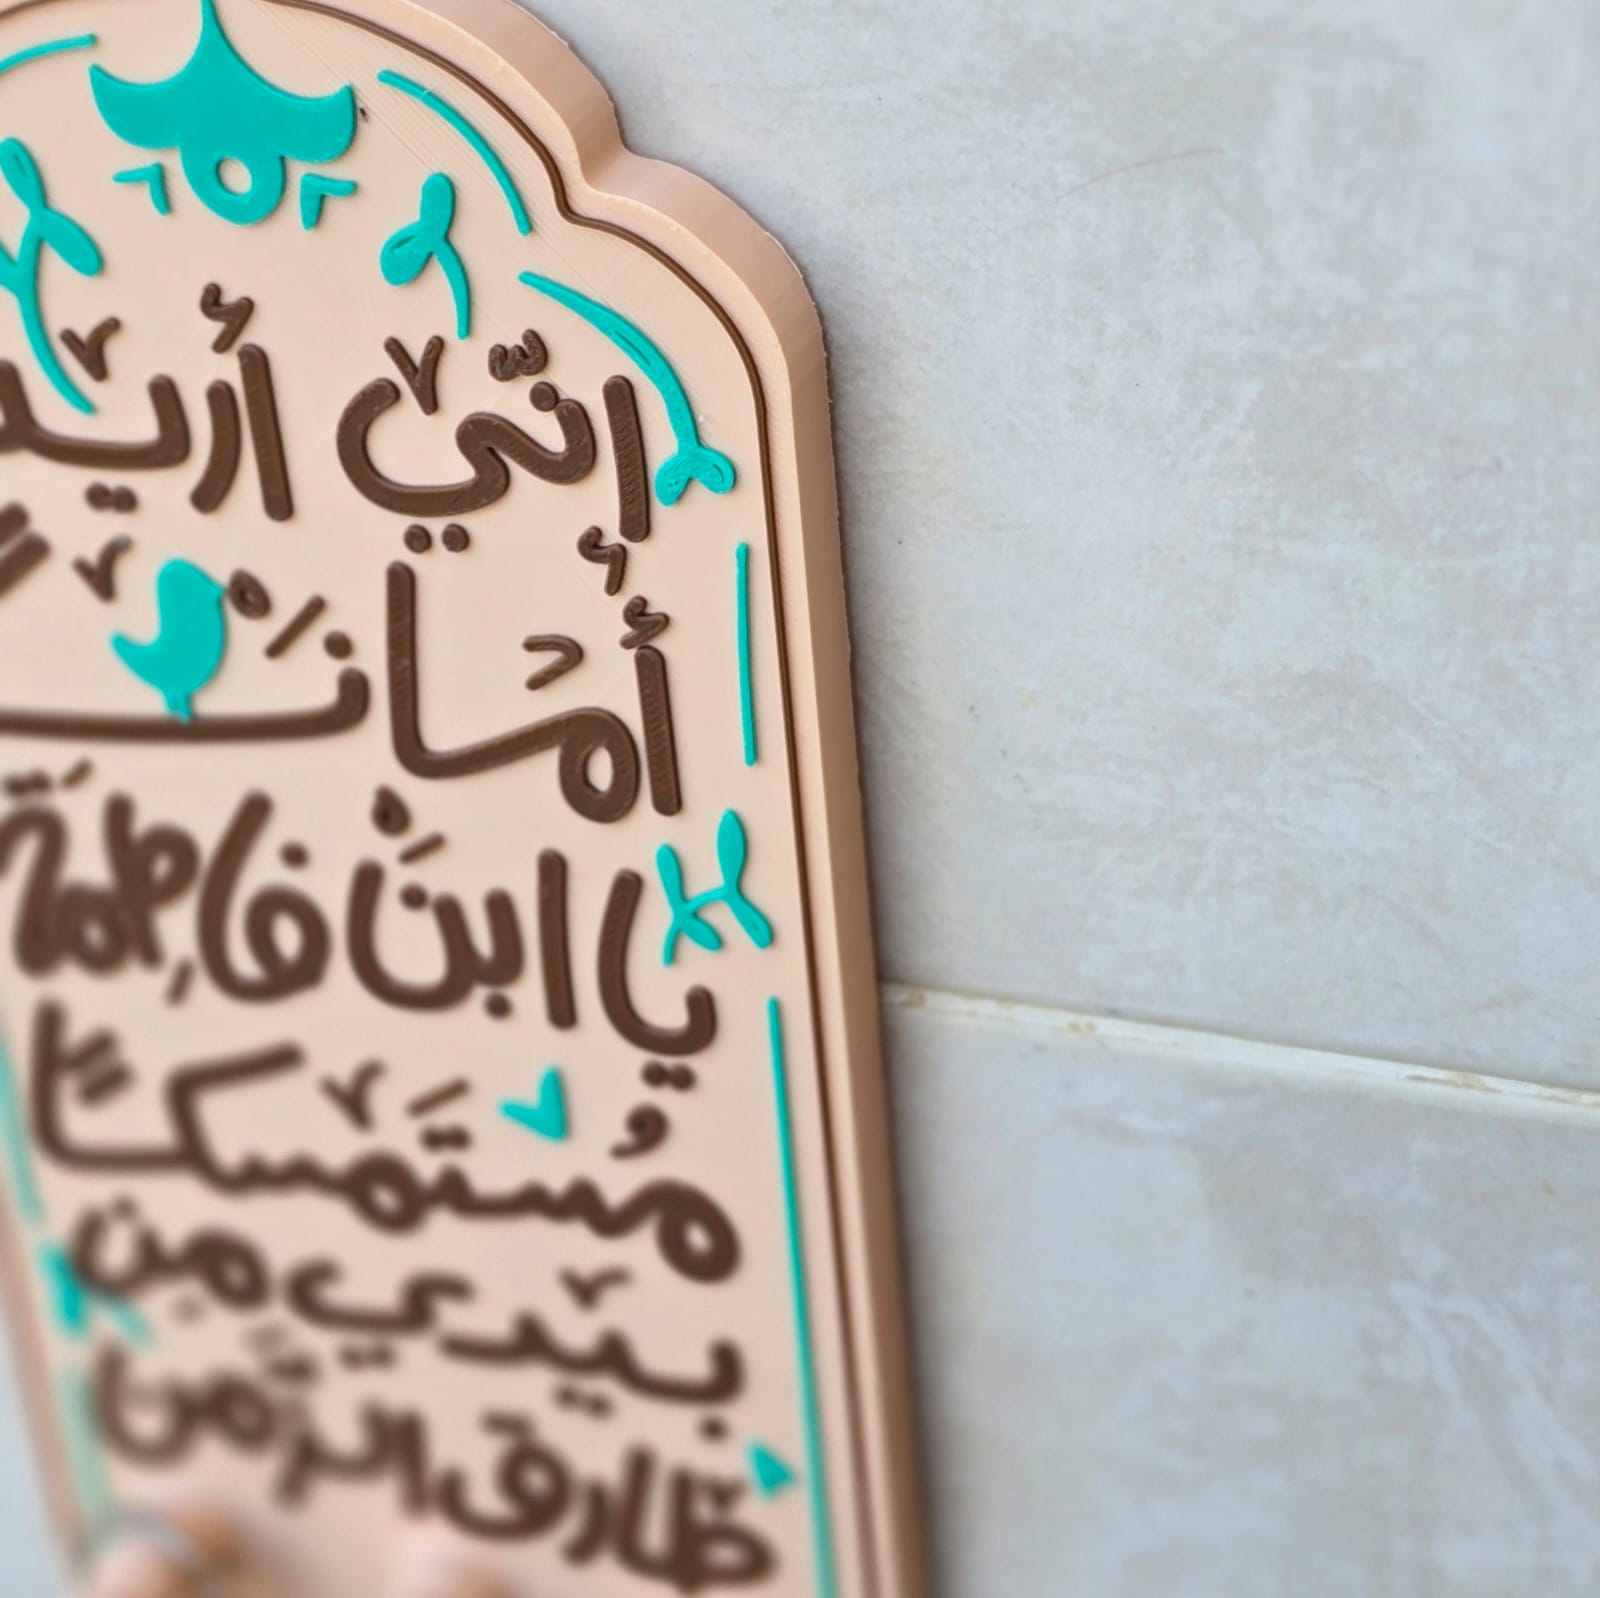 إنّي أريد
أمانًا
يا ابن فاطمة
مُستمسكًا
بيدي من
طارق الزمن